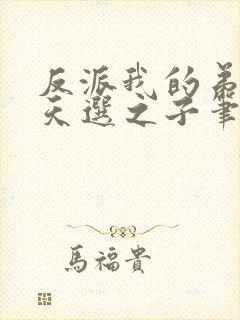 反派我的
天選之子筆
馬福貴